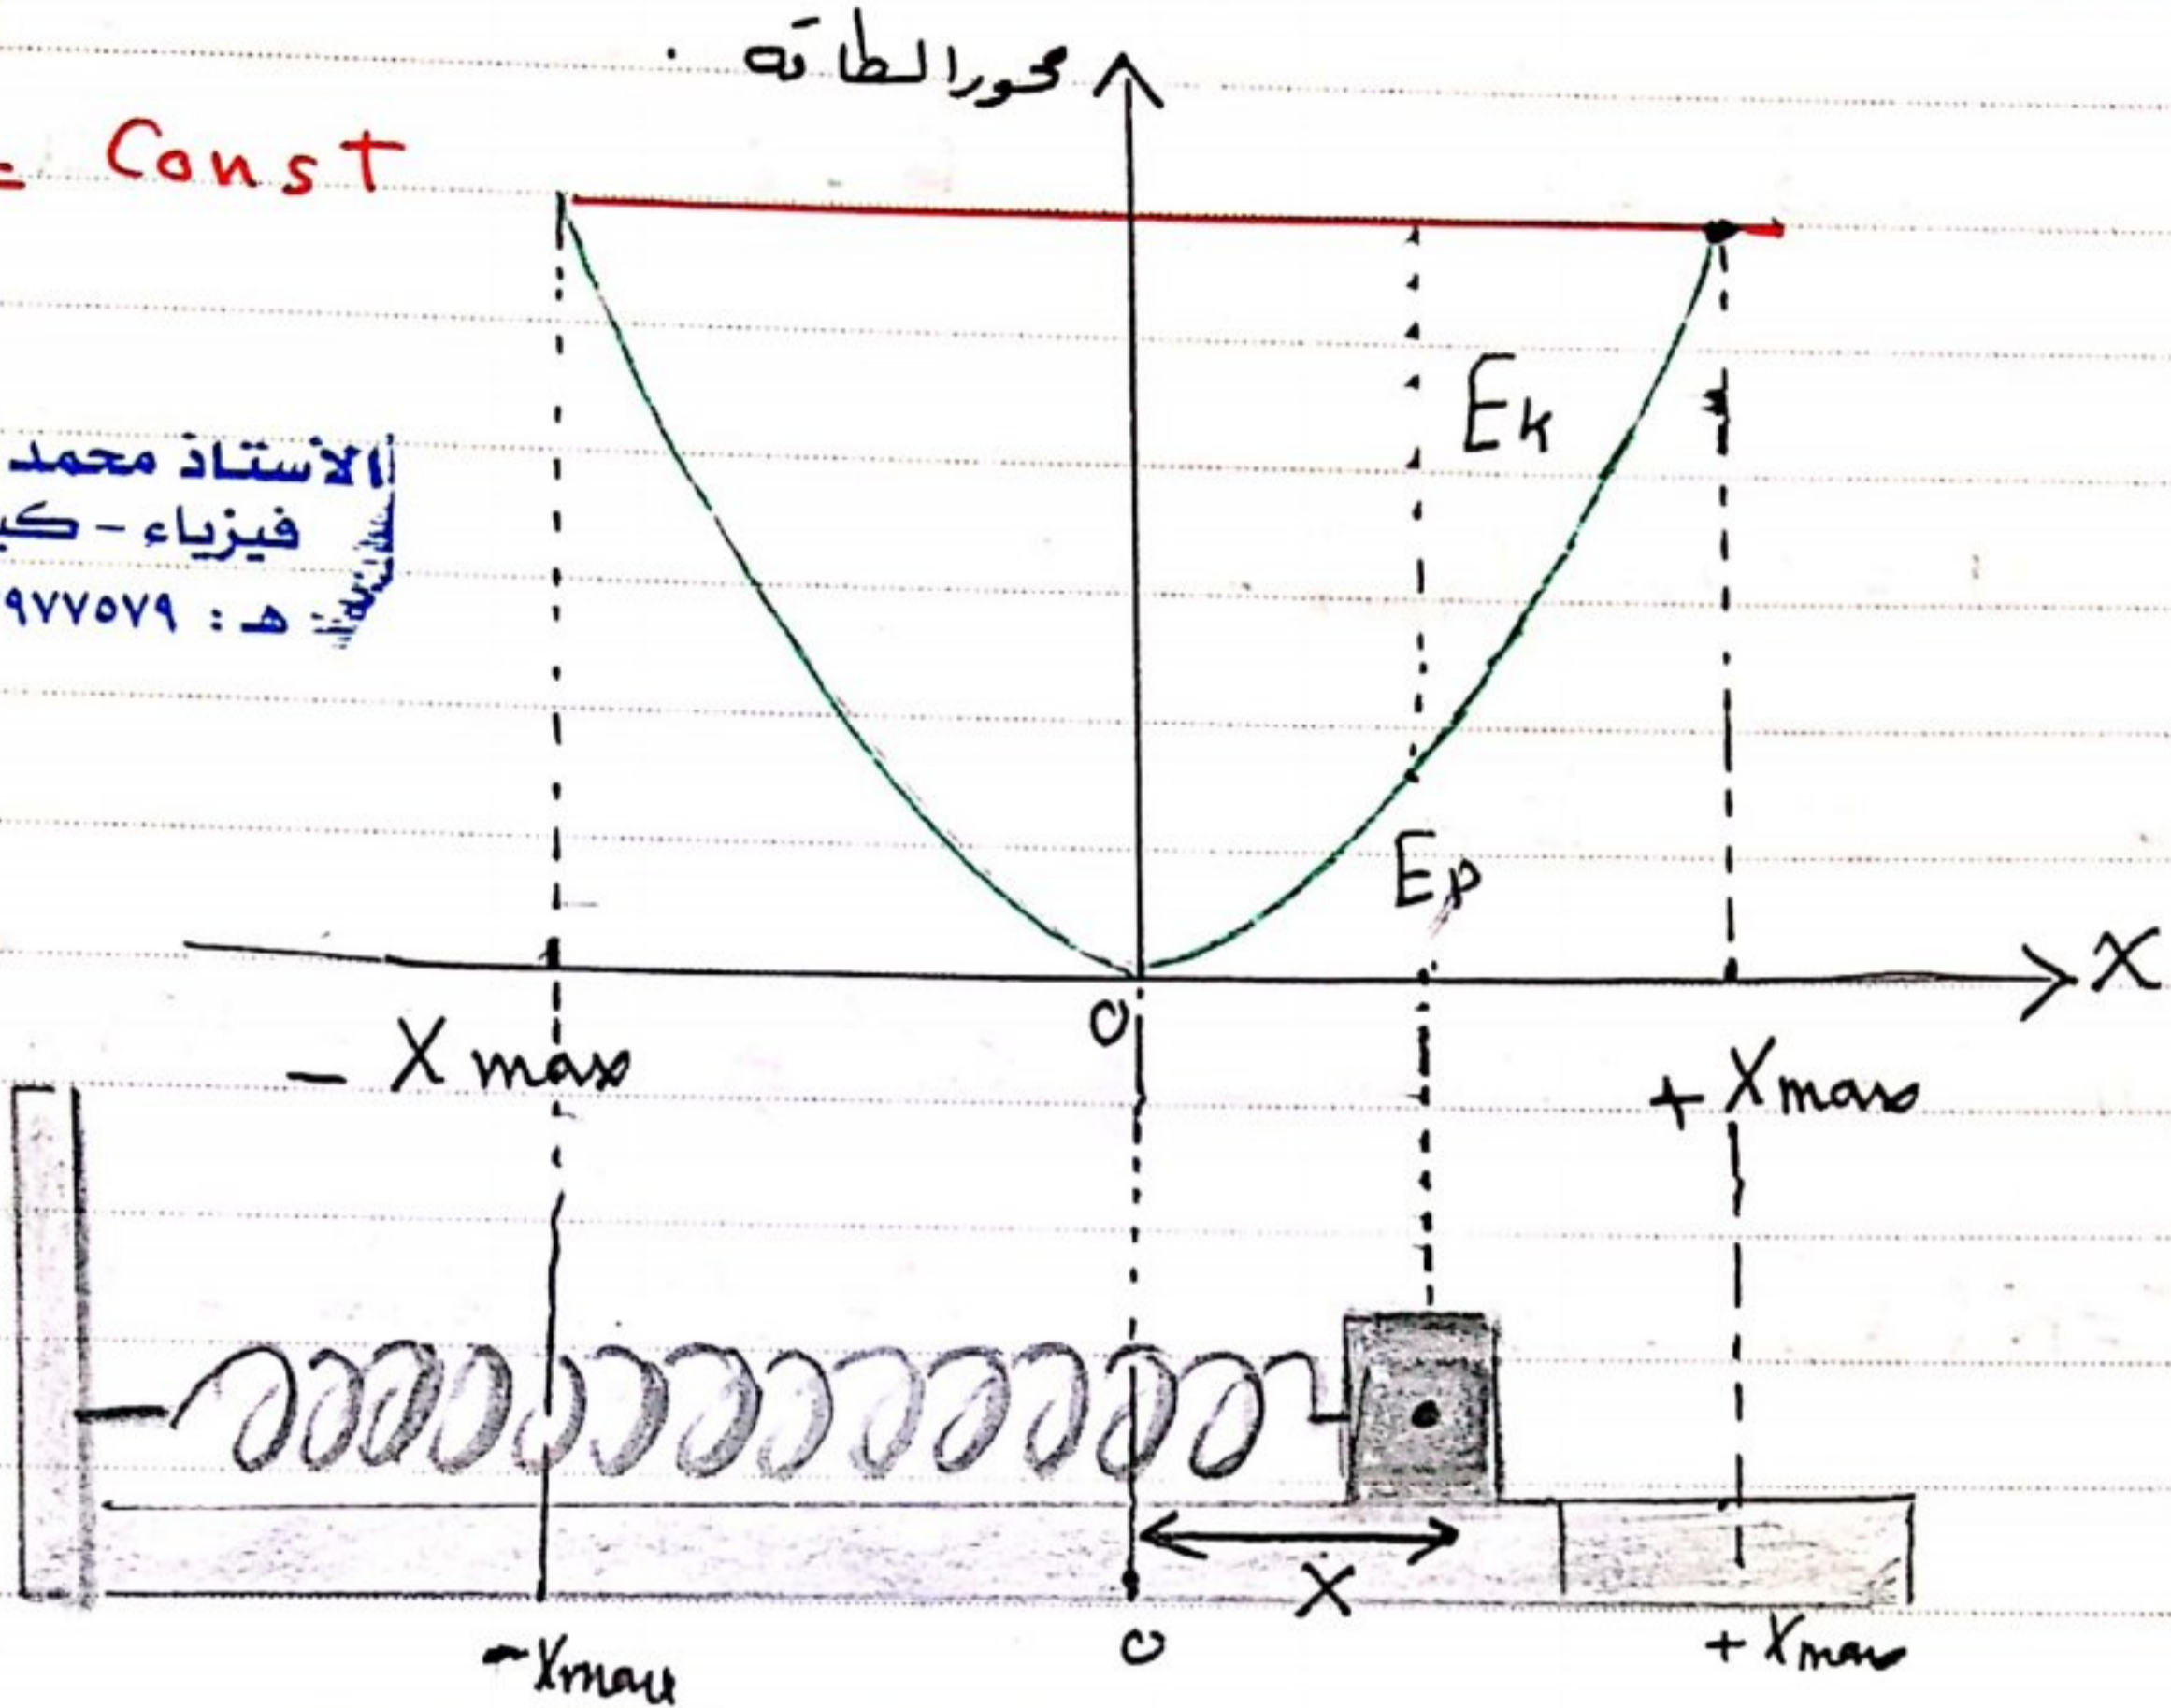 محور الطاقة
= Const
الأستاذ محمد
فيزياء -
هـ : ٩٧٧٥٧٩
Ek
Ep
X
0
- X max
+ X max
X
- X max
0
+ X max